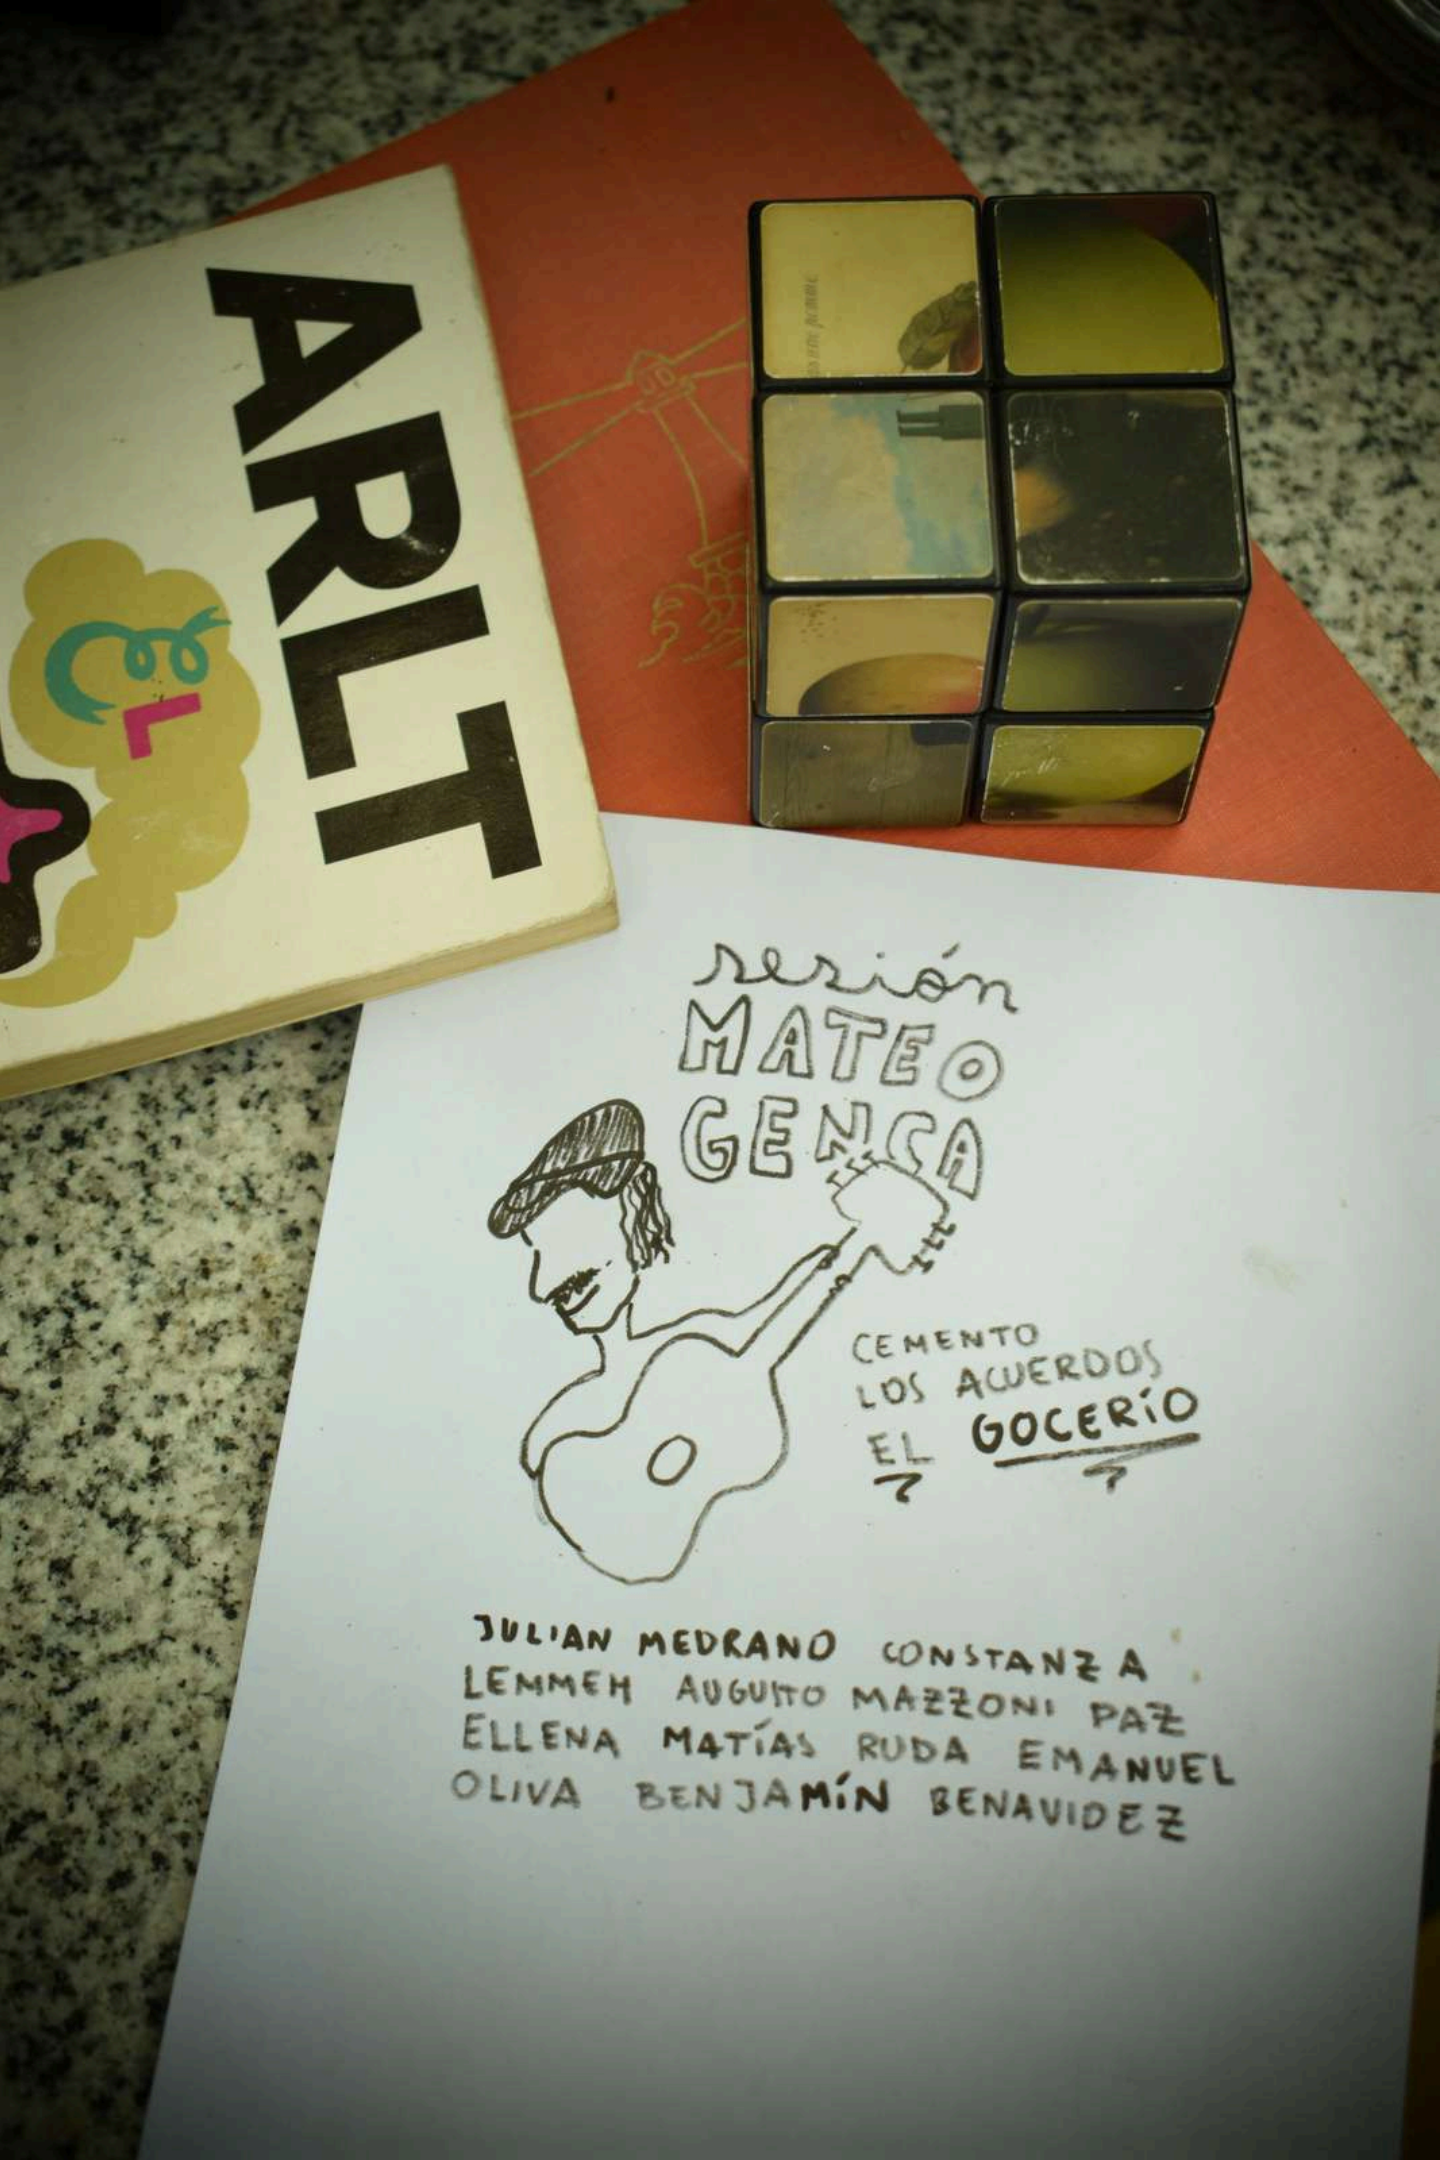 ARLT
EL
JD
sesión
MATEO
GENCA
CEMENTO
LOS ACUERDOS
EL GOCERíO
JULIAN MEDRANO CONSTANZA
LEMMEH AUGUSTO MAZZONI PAZ
ELLENA MATíAS RUDA EMANUEL
OLIVA BENJAMíN BENAVIDEZ